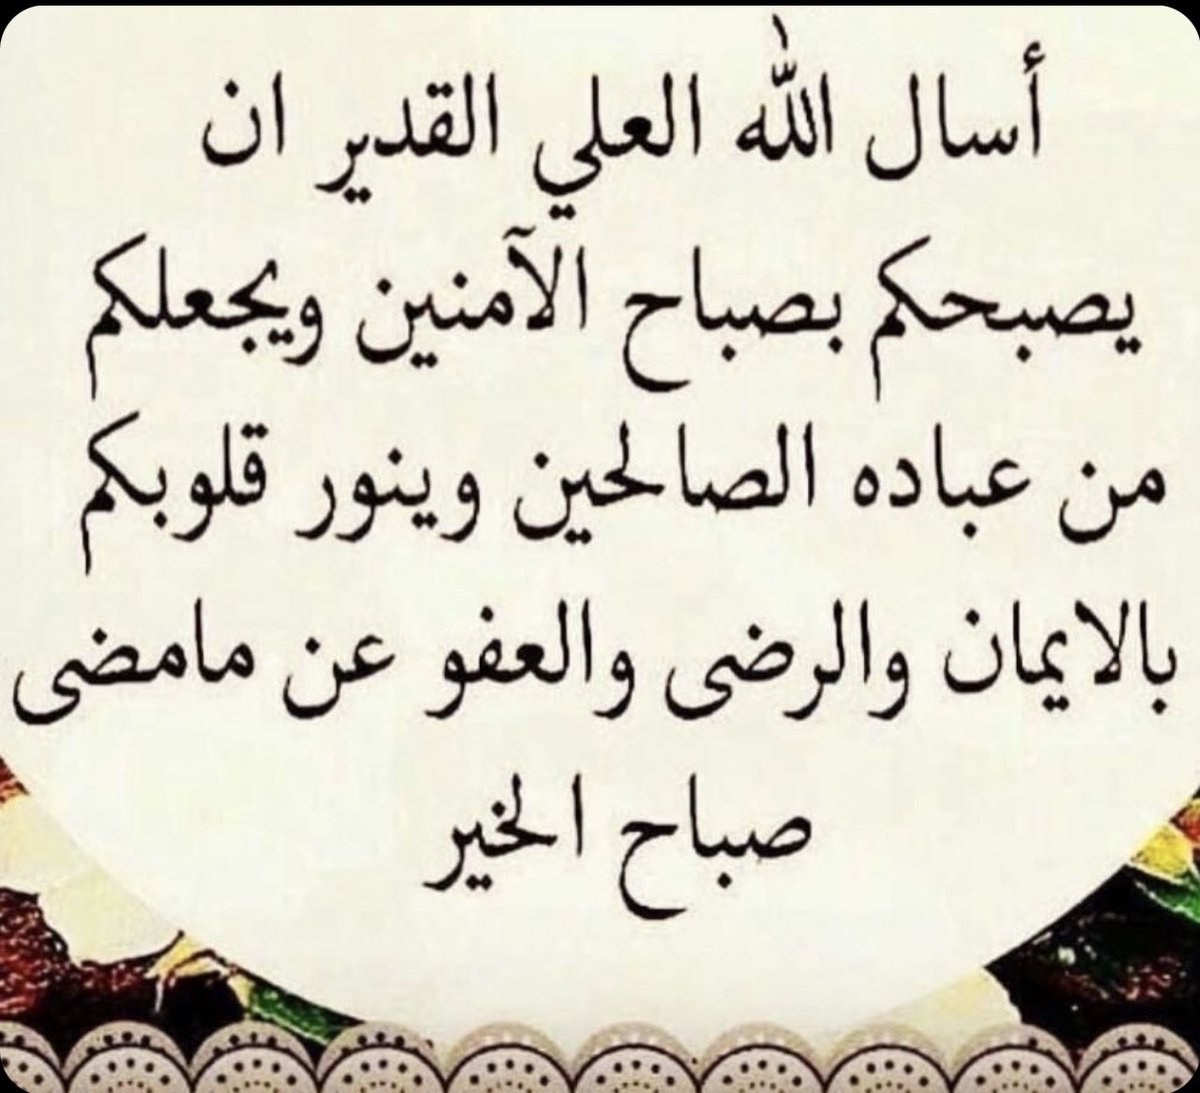 أسال الله العلي القدير ان
يصبحكم بصباح الآمنين ويجعلكم
من عباده الصالحين وينور قلوبكم
بالايمان والرضى والعفو عن مامضى
صباح الخير